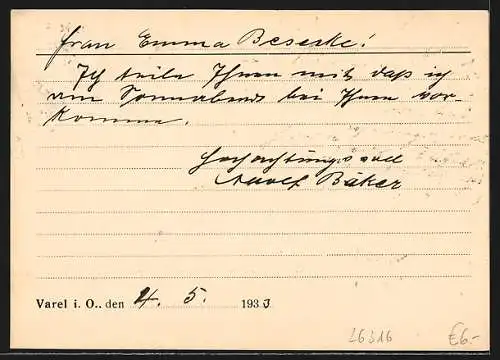 Frau Emma Beseke!
Ich teile Ihnen mit, daß ich
am Sonnabend bei Ihnen vor-
komme.
Hochachtungsvoll
Adolf Bäker
Varel i. O., den 4. 5. 1933
26316 £6.-